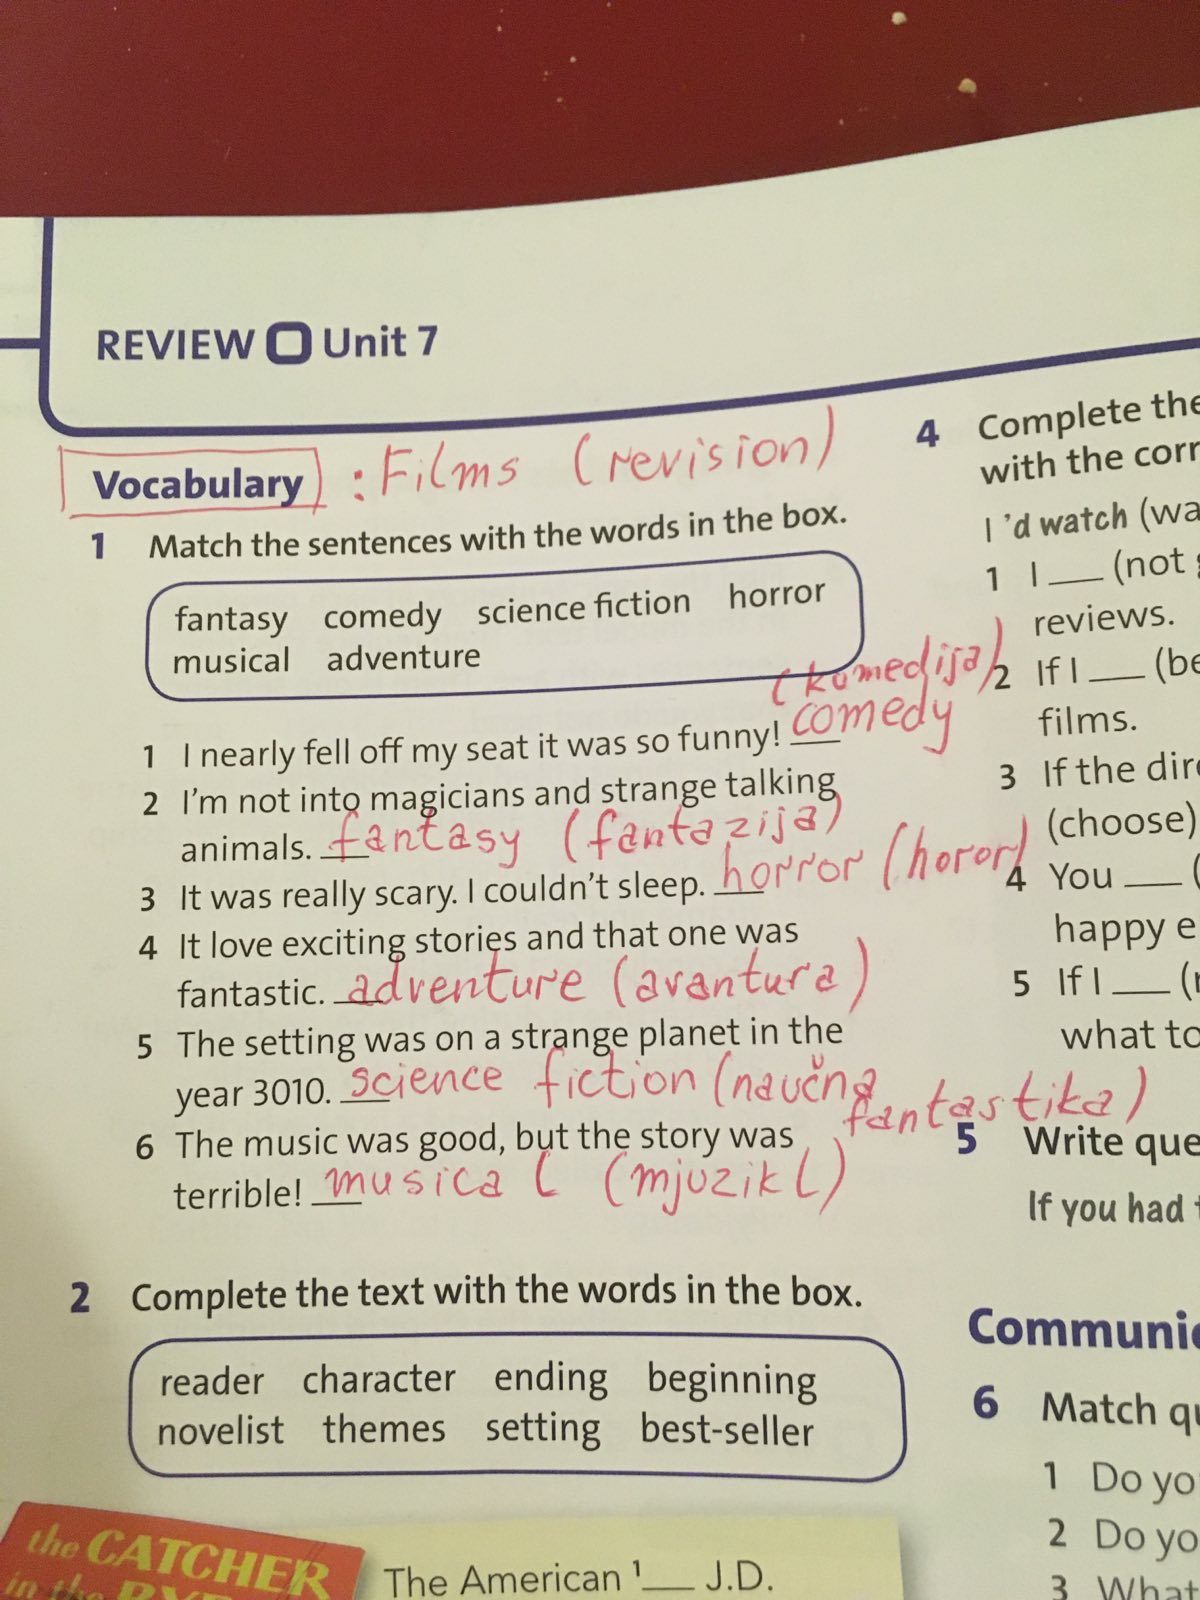 REVIEW Unit 7
Vocabulary : Films (revision)
1 Match the sentences with the words in the box.
fantasy comedy science fiction horror
musical adventure
(komedija)
1 I nearly fell off my seat it was so funny! ___ comedy
2 I'm not into magicians and strange talking
animals. ___ fantasy (fantazija)
3 It was really scary. I couldn't sleep. ___ horror (horor)
4 It love exciting stories and that one was
fantastic. ___ adventure (avantura)
5 The setting was on a strange planet in the
year 3010. ___ science fiction (naučna
fantastika)
6 The music was good, but the story was
terrible! ___ musical (mjuzikl)
2 Complete the text with the words in the box.
reader character ending beginning
novelist themes setting best-seller
the CATCHER
in the RYE
The American 1___ J.D.
4 Complete the
with the corr
I 'd watch (wa
1 I ___ (not
reviews.
2 If I ___ (be
films.
3 If the dire
(choose)
4 You ___ (
happy e
5 If I ___ (r
what to
5 Write que
If you had t
Communic
6 Match qu
1 Do yo
2 Do yo
3 What